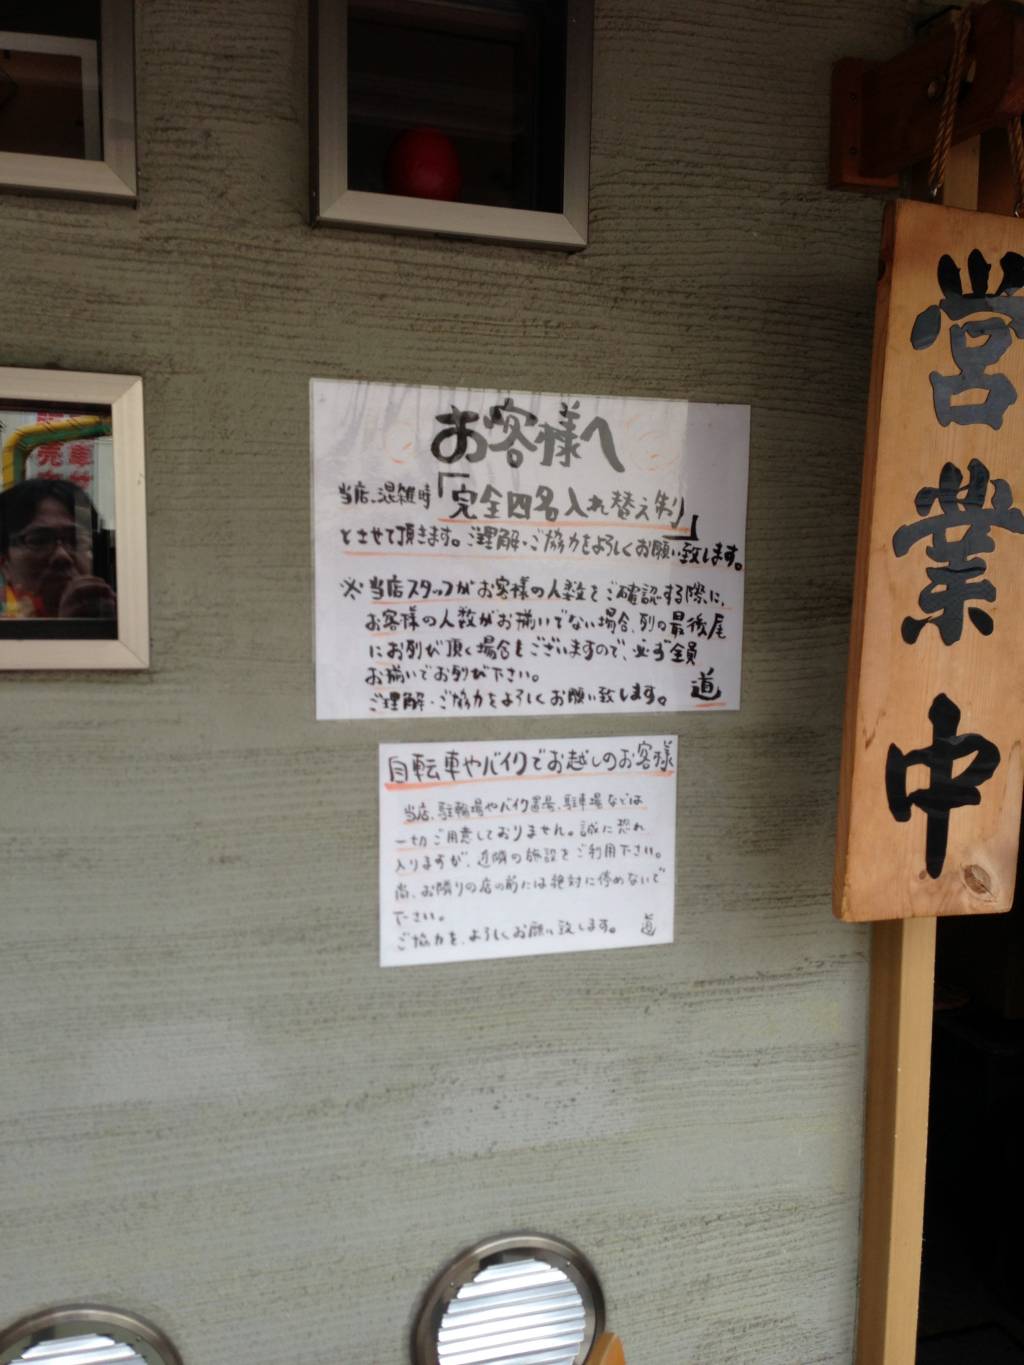 お客様へ
当店、混雑時「完全四名入れ替え制」
とさせて頂きます。ご理解・ご協力をよろしくお願い致します。
※当店スタッフがお客様の人数をご確認する際に、
お客様の人数がお揃いでない場合、列の最後尾
にお列び頂く場合もございますので、必ず全員
お揃いでお列び下さい。
ご理解・ご協力をよろしくお願い致します。 道
自転車やバイクでお越しのお客様
当店、駐輪場やバイク置場、駐車場などは
一切ご用意しておりません。誠に恐れ
入りますが、近隣の施設をご利用下さい。
尚、お隣りの店の前には絶対に停めないで
下さい。
ご協力を、よろしくお願い致します。 道
営業中